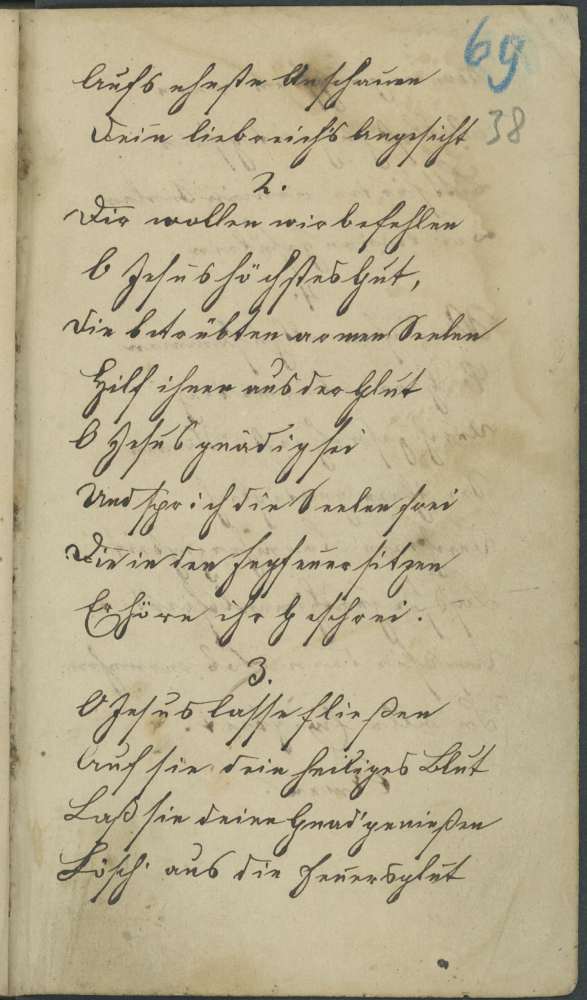 69
Aufs eheste Anschauen
Dein liebreich's Angesicht 38
2.
Dir wollen wir befehlen
O Jesus höchstes Gut,
Die betrübten armen Seelen
Hilf ihnen aus der Glut
O Jesus gnädig sei
Und sprich die Seelen frei
Die in den Fegfeuer sitzen
Erhöre ihr Geschrei.
3.
O Jesus lasse fließen
Auf sie dein heiliges Blut
Laß sie deine Gnad' genießen
Lösch' aus die Feuersglut